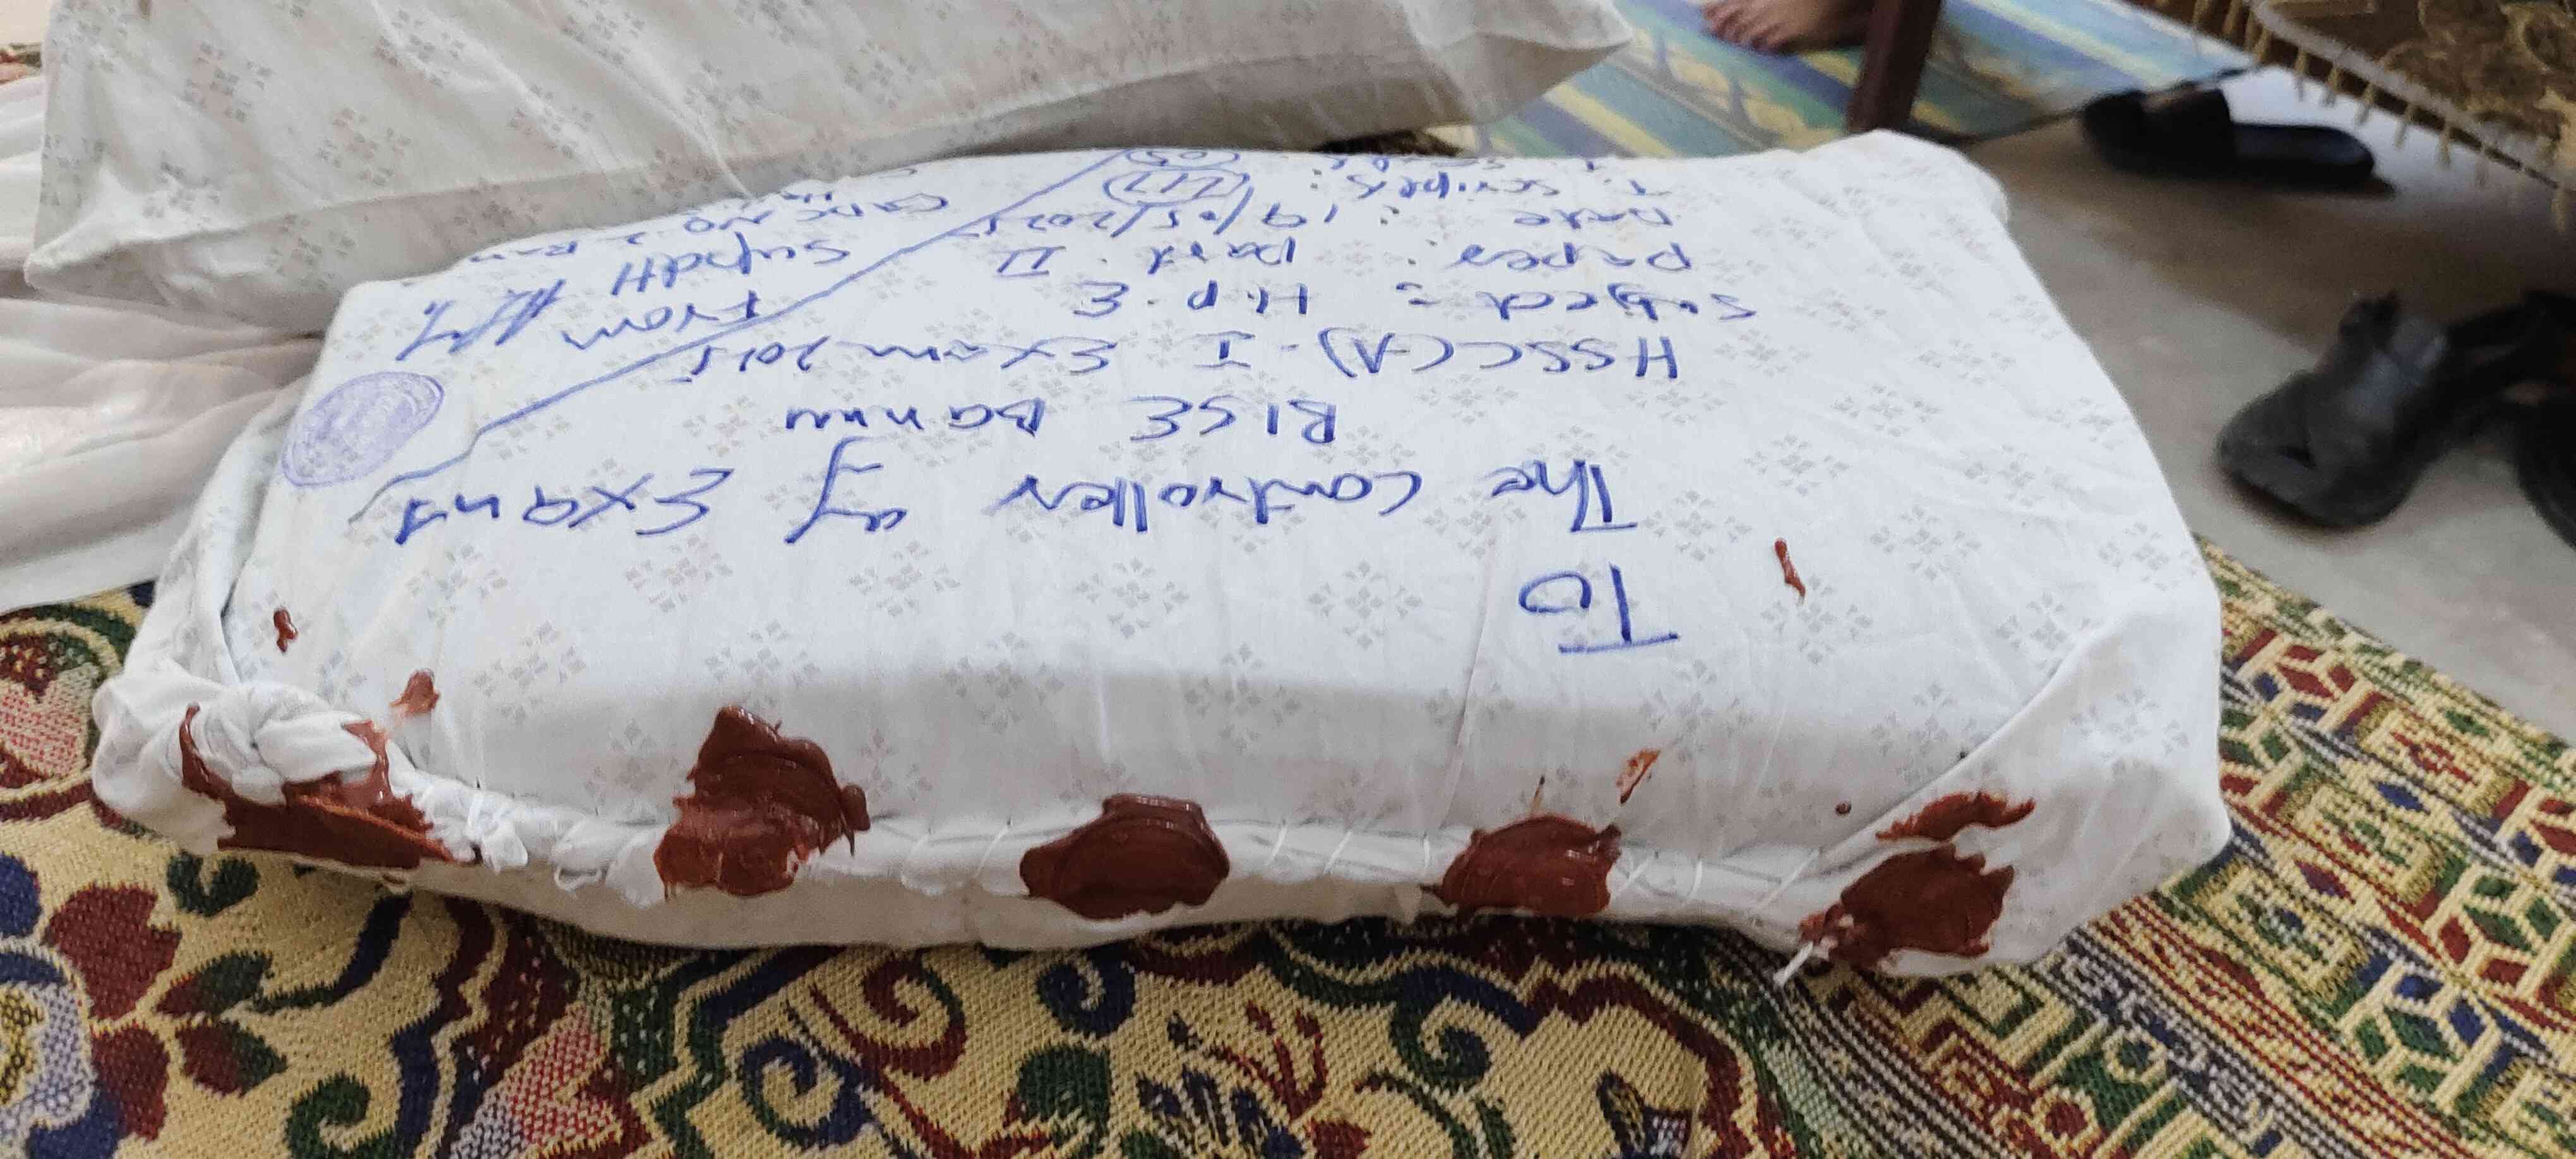 To
The Controller of Exams
BISE Bannu
HSSC(A)-I Exam 2025
Subject = H.P.E
Paper: Part II
Date : 19/05/2025
T. Scripts: 217
From
Supdtt
GDC NO. 2